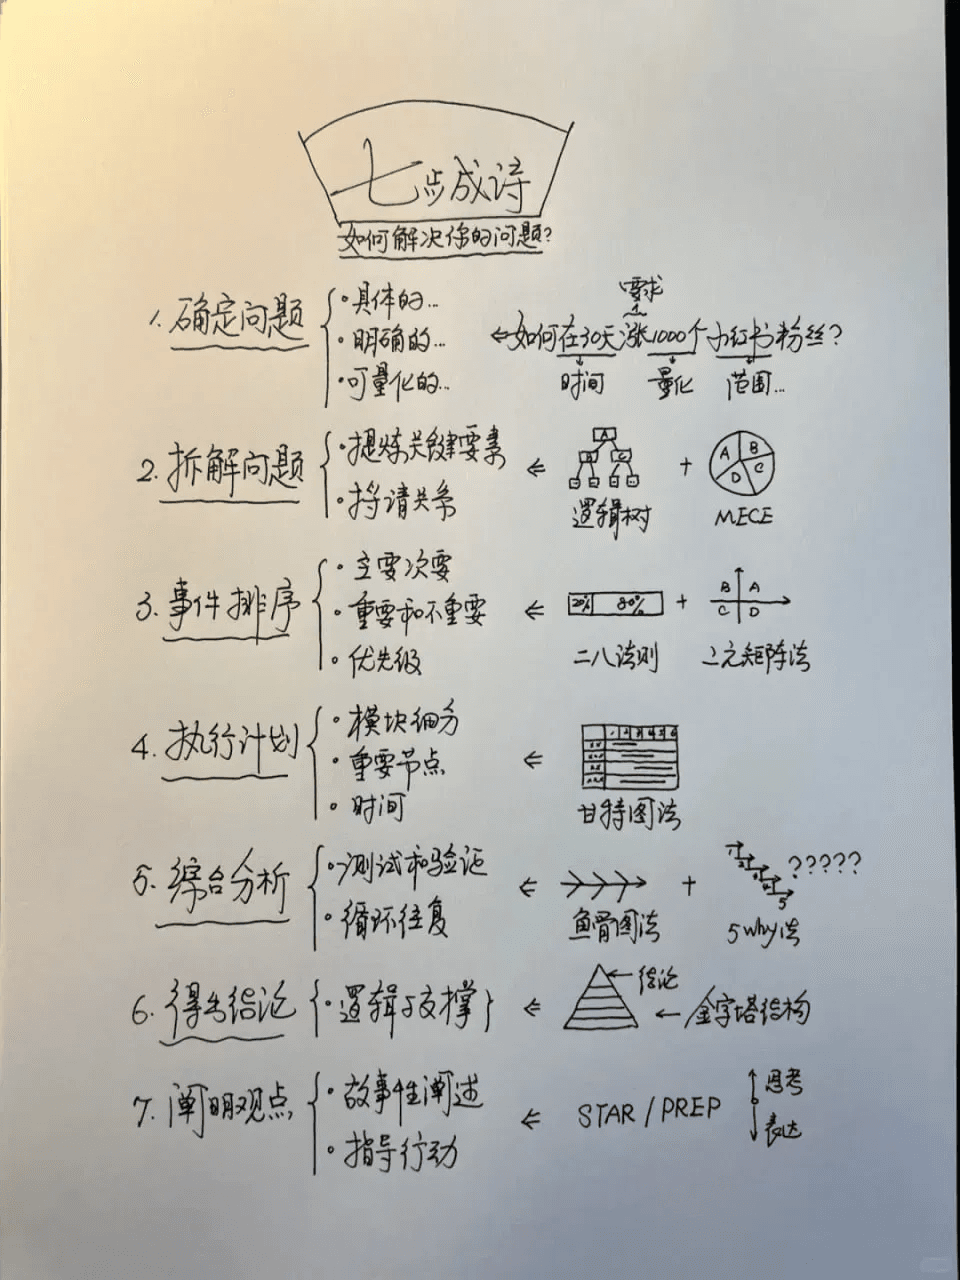 七步成诗
如何解决你的问题?
1. 确定问题
·具体的...
·明确的...
·可量化的...
要求
如何在30天涨1000个小红书粉丝?
时间 量化 范围...
2. 拆解问题
·提炼关键要素
·捋清关系
A
B C
逻辑树
+
A B C D
MECE
3. 事件排序
·主要次要
·重要和不重要
·优先级
20% 80%
二八法则
+
B A
C D
二元矩阵法
4. 执行计划
·模块细分
·重要节点
·时间
1 2 3 4 5 6
甘特图法
5. 综合分析
·测试和验证
·循环往复
鱼骨图法
+
?????
5
5why法
6. 得出结论
·逻辑与支撑
结论
金字塔结构
7. 阐明观点
·故事性阐述
·指导行动
STAR / PREP
思考
表达